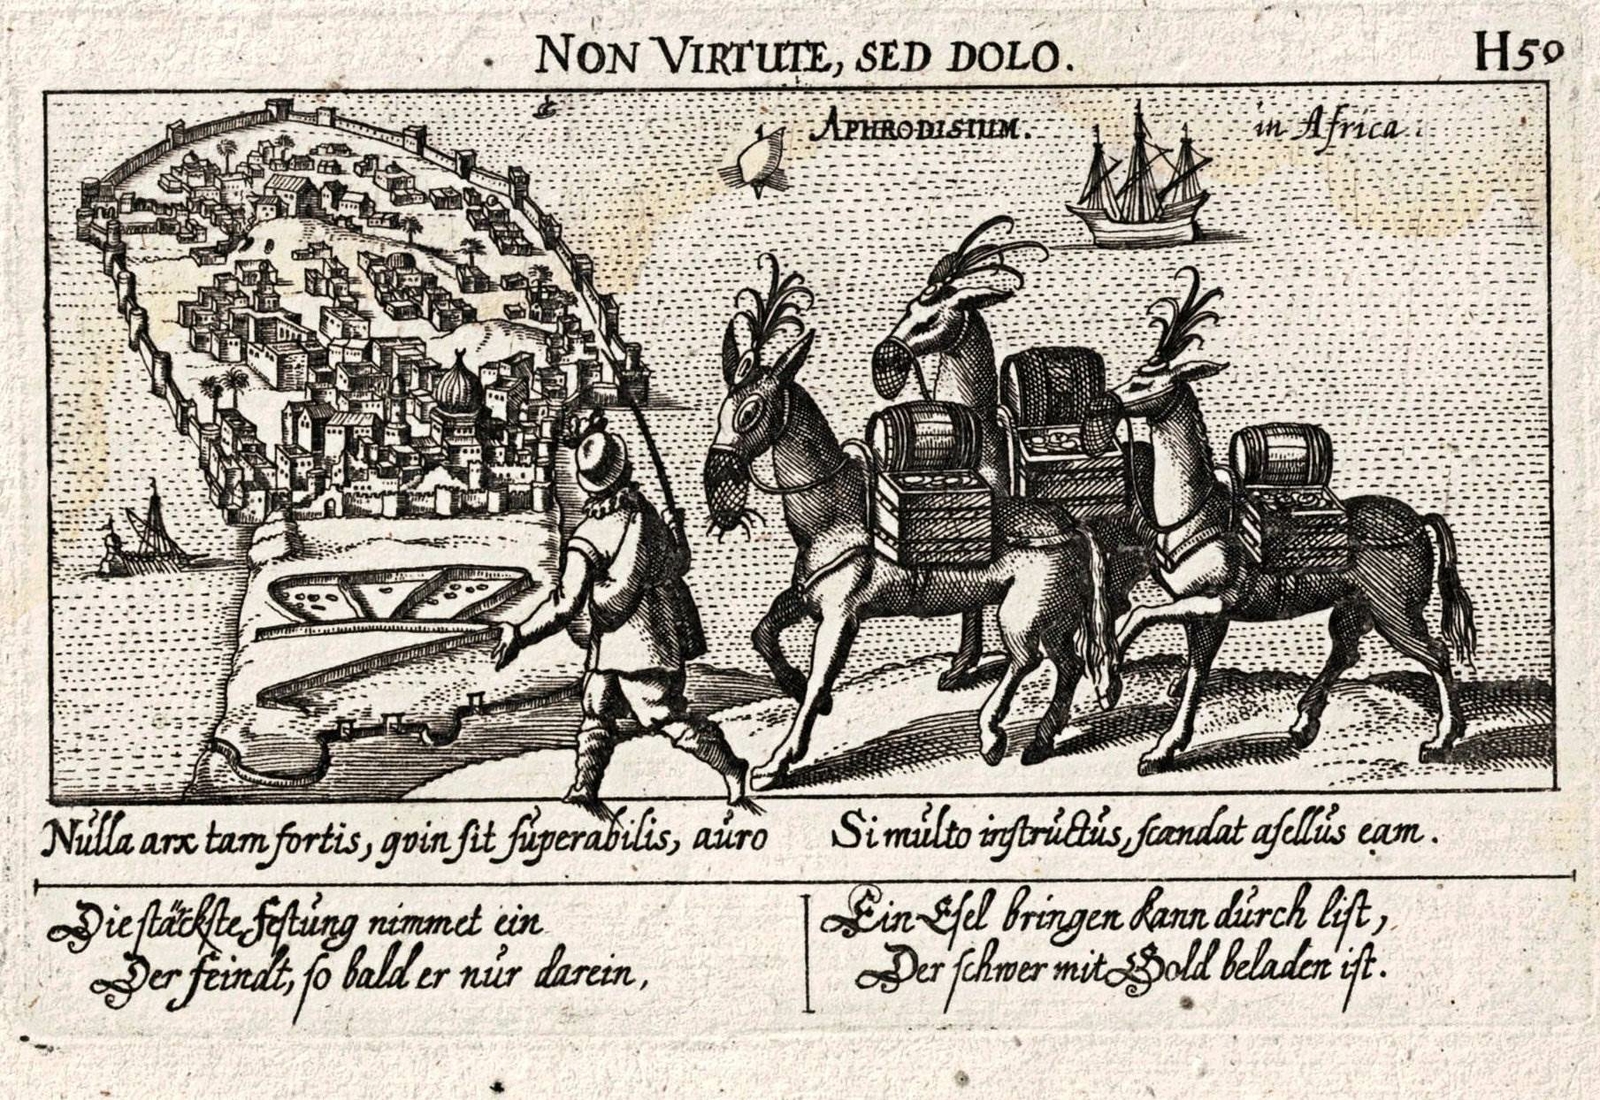 NON VIRTUTE, SED DOLO.
H50
APHRODISIUM. in Africa.
Nulla arx tam fortis, qvin ſit ſuperabilis, auro
Si multo inſtructus, ſcandat aſellus eam.
Die ſtäckſte feſtung nimmet ein
Der feindt, ſo bald er nur darein,
Ein Eſel bringen kann durch liſt,
Der ſchwer mit Gold beladen iſt.